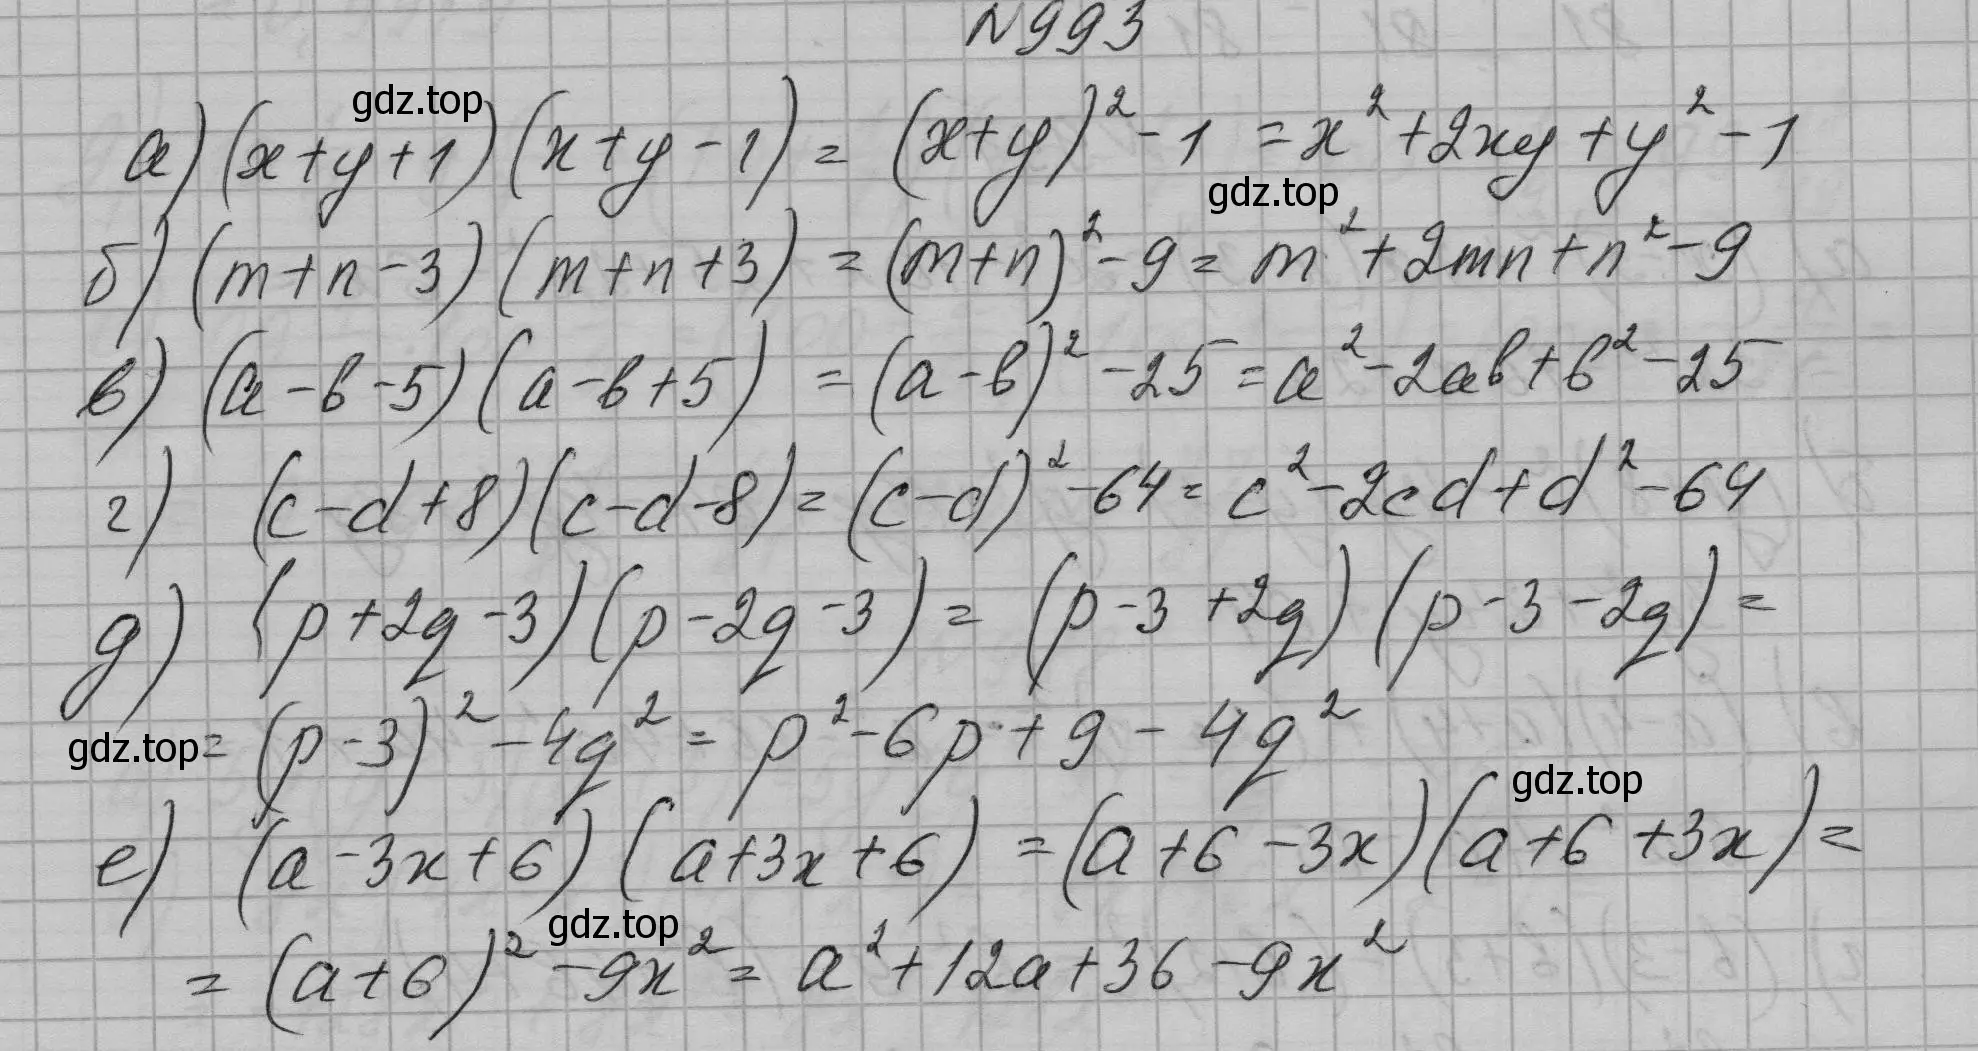 N993
gdz.top
а) (x+y+1)(x+y-1) = (x+y)² - 1 = x² + 2xy + y² - 1
gdz.top
б) (m+n-3)(m+n+3) = (m+n)² - 9 = m² + 2mn + n² - 9
в) (a-b-5)(a-b+5) = (a-b)² - 25 = a² - 2ab + b² - 25
г) (c-d+8)(c-d-8) = (c-d)² - 64 = c² - 2cd + d² - 64
д) (p+2q-3)(p-2q-3) = (p-3+2q)(p-3-2q) =
gdz.top = (p-3)² - 4q² = p² - 6p + 9 - 4q²
gdz.top
е) (a-3x+6)(a+3x+6) = (a+6-3x)(a+6+3x) =
gdz.top
= (a+6)² - 9x² = a² + 12a + 36 - 9x²